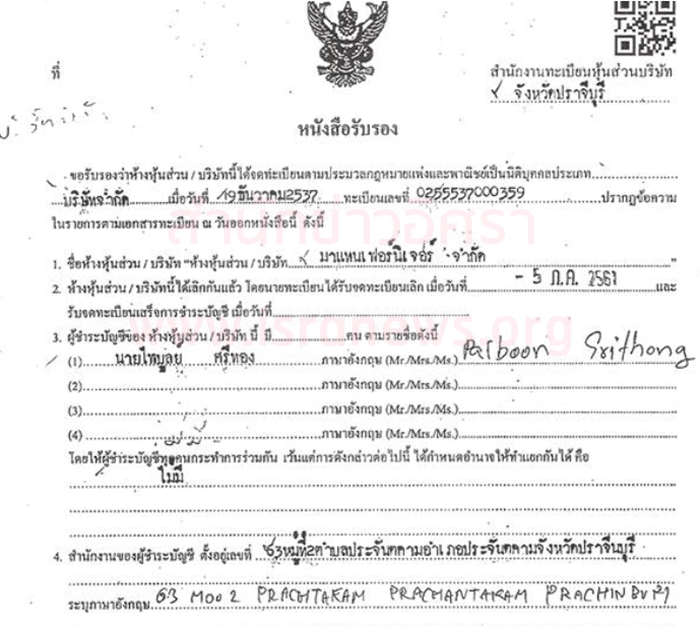 ที่
สำนักงานทะเบียนหุ้นส่วนบริษัท
จังหวัดปราจีบุรี
หนังสือรับรอง
ขอรับรองว่าห้างหุ้นส่วน / บริษัทนี้ได้จดทะเบียนตามประมวลกฎหมายแพ่งและพาณิชย์เป็นนิติบุคคลประเภท
บริษัทจำกัด เมื่อวันที่ 19ธันวาคม2537 ทะเบียนเลขที่ 0255537000359 ปรากฏข้อความ
ในรายการตามเอกสารทะเบียน ณ วันออกหนังสือนี้ ดังนี้
สำนักข่าวอิศรา
1. ชื่อห้างหุ้นส่วน / บริษัท "ห้างหุ้นส่วน / บริษัท มาแหนเฟอร์นิเจอร์ จำกัด "
2. ห้างหุ้นส่วน / บริษัทนี้ได้เลิกกันแล้ว โดยนายทะเบียนได้รับจดทะเบียนเลิก เมื่อวันที่ - 5 ก.ค. 2561 และ
รับจดทะเบียนเสร็จการชำระบัญชี เมื่อวันที่
www.isranews.org
3. ผู้ชำระบัญชีของ ห้างหุ้นส่วน / บริษัท นี้ มี คน ตามรายชื่อดังนี้
(1) นายไพบูลย์ ศรีทอง ภาษาอังกฤษ (Mr./Mrs./Ms.) Paiboon Srithong
(2) ภาษาอังกฤษ (Mr./Mrs./Ms.)
(3) ภาษาอังกฤษ (Mr./Mrs./Ms.)
(4) ภาษาอังกฤษ (Mr./Mrs./Ms.)
โดยให้ผู้ชำระบัญชีทุกคนกระทำการร่วมกัน เว้นแต่การดังกล่าวต่อไปนี้ ได้กำหนดอำนาจให้ทำแยกกันได้ คือ
ไม่มี
4. สำนักงานของผู้ชำระบัญชี ตั้งอยู่เลขที่ 63หมู่ที่2ตำบลประจันตคามอำเภอประจันตคามจังหวัดปราจีนบุรี
ระบุภาษาอังกฤษ 63 MOO 2 PRACHTAKAM PRACHANTAKAM PRACHINBURI